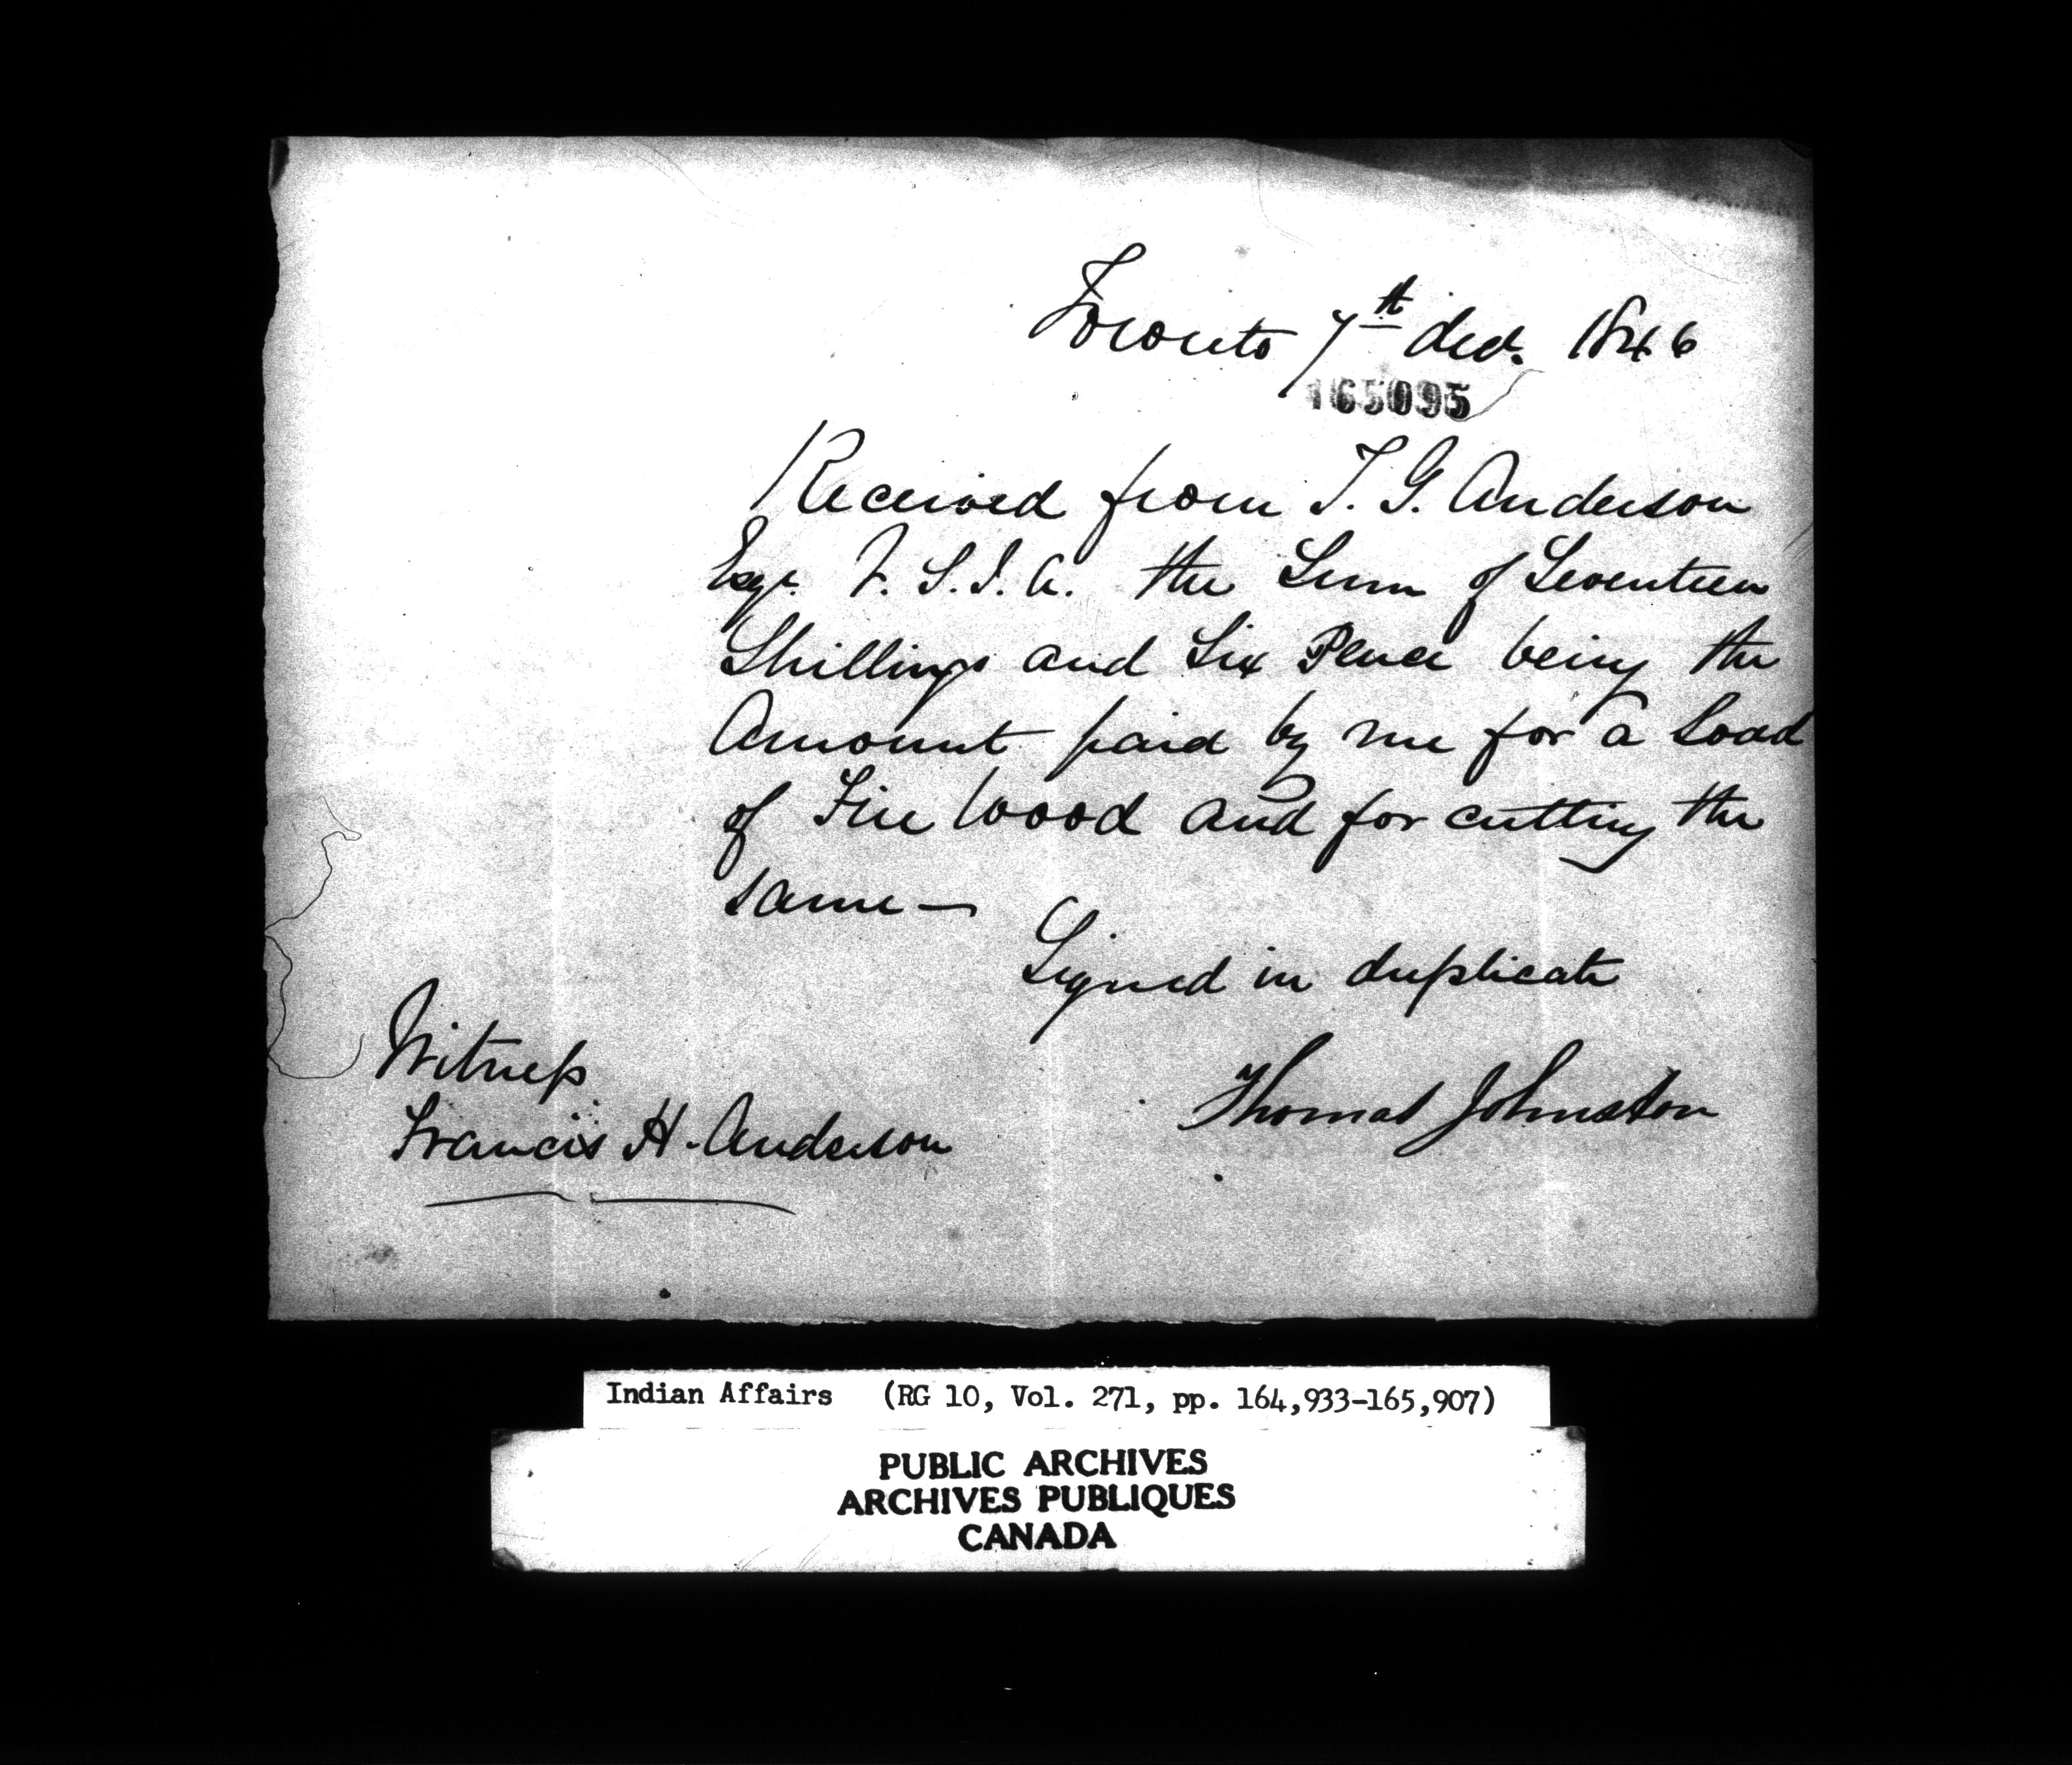 Toronto 7th decr. 1846
165095
Received from T. G. Anderson
Esqr. V. S. I. A. the Sum of Seventeen
Shillings and Six Pence being the
Amount paid by me for a load
of Fire Wood and for cutting the
same —
Signed in duplicate
Witness
Francis H. Anderson
Thomas Johnston
Indian Affairs (RG 10, Vol. 271, pp. 164,933-165,907)
PUBLIC ARCHIVES
ARCHIVES PUBLIQUES
CANADA